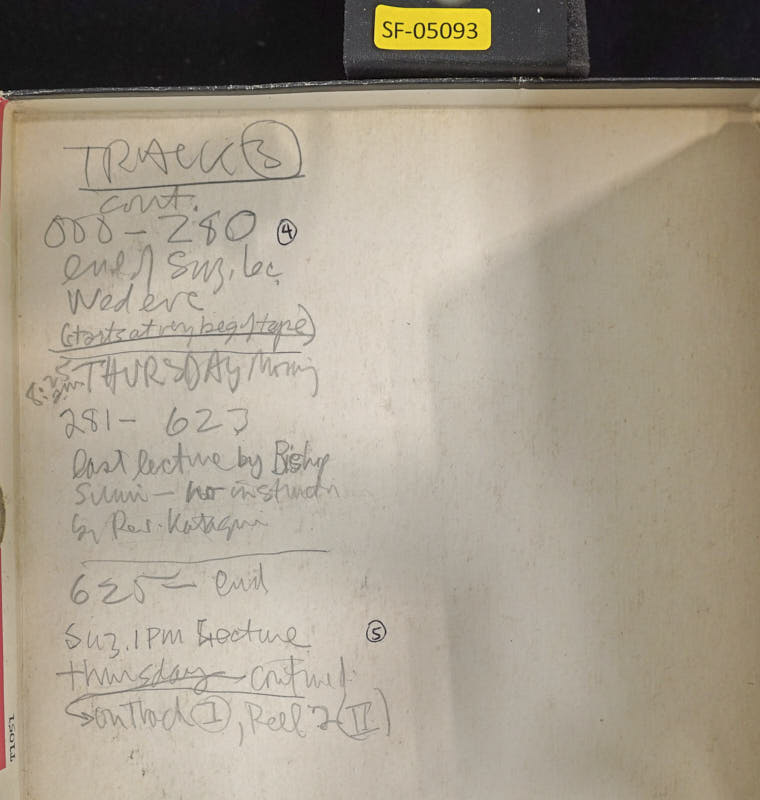 SF-05093
TRACK 3
cont.
000 - 280 4
end of Suz. lec.
Wed eve
(starts at very beg of tape)
8:25 am THURSDAY Morning
281 - 623
last lecture by Bishop
Sumi - no instruction
by Rev. Katagiri
625 - end
Suz. 1 PM Lecture 5
thursday - continued
on Track I, Reel 2 (II)